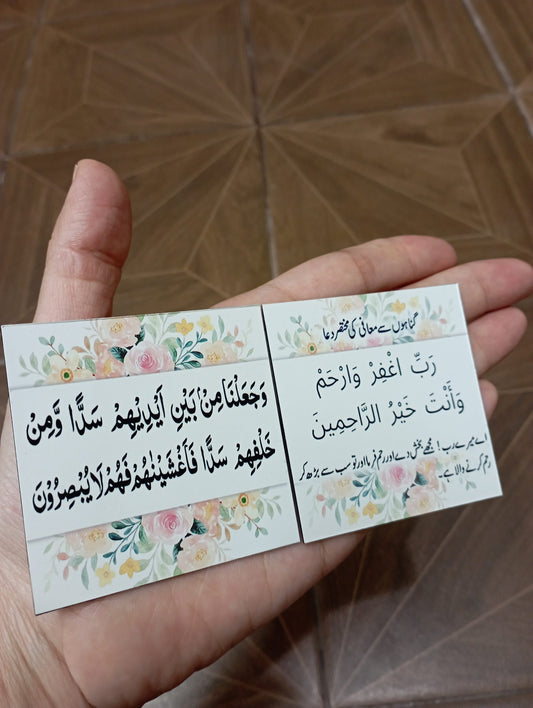 وَجَعَلْنَا مِنْۢ بَيْنِ اَيْدِيْهِمْ سَدًّا وَّمِنْ
خَلْفِهِمْ سَدًّا فَاَغْشَيْنٰهُمْ فَهُمْ لَا يُبْصِرُوْنَ
گناہوں سے معافی کی مختصر دعا
رَبِّ اغْفِرْ وَارْحَمْ
وَأَنْتَ خَيْرُ الرَّاحِمِينَ
اے میرے رب! مجھے بخش دے اور رحم فرما اور تو سب سے بڑھ کر
رحم کرنے والا ہے۔